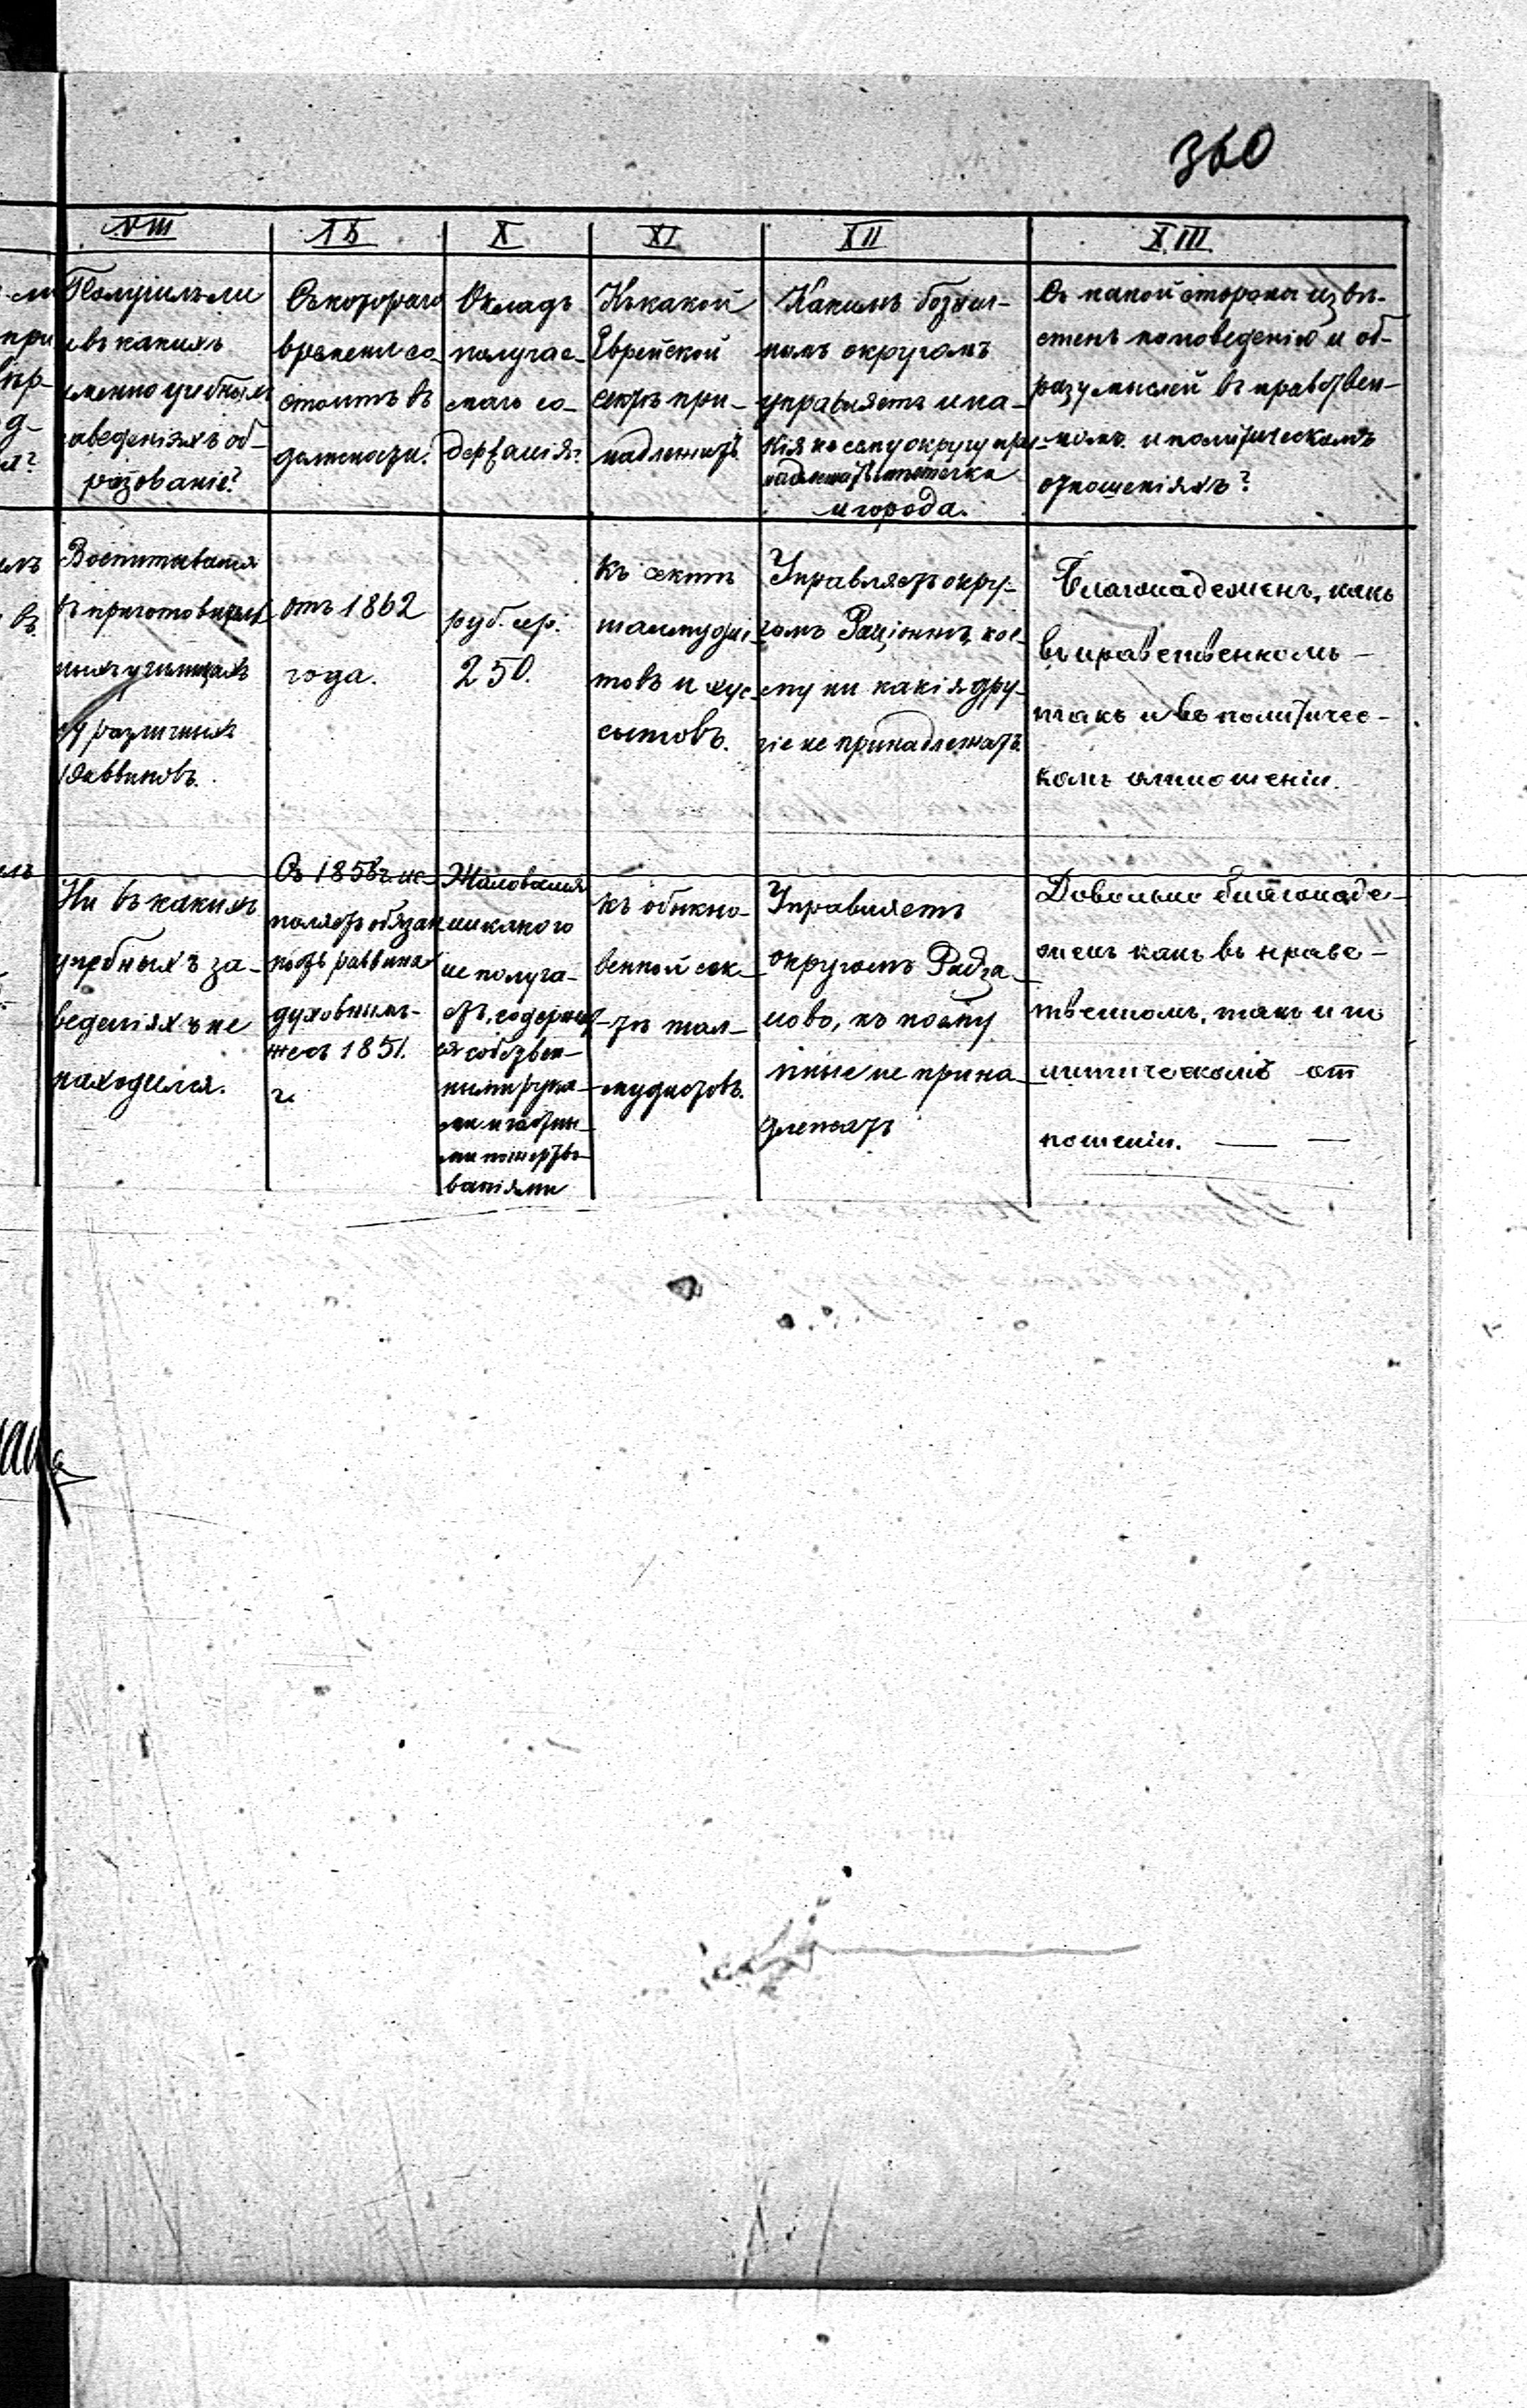 360
VIII
IX
X
XI
XII
XIII
Получилъ ли
и въ какихъ
именно учебныхъ
заведеніяхъ об-
разованіе?
Съ котораго
времени со-
стоитъ въ
должности.
Окладъ
получае-
маго со-
держанія?
Къ какой
Еврейской
сектѣ при-
надлежитъ
Какимъ божни-
нымъ округомъ
управляетъ и ка-
кія къ сему округу при-
надлежатъ мѣстечка
и города.
Съ какой стороны извѣ-
стенъ по поведенію и об-
разу мыслей въ нравствен-
номъ и политическомъ
отношеніяхъ?
Воспитывался
въ приготовитель
ныхъ училищахъ
у различныхъ
Раввиновъ.
отъ 1862
года.
руб. сер.
250.
къ сектѣ
талмуди
товъ и хус-
сытовъ.
Управляетъ окру-
гомъ Раціонжъ, кое-
му ни какія дру-
гіе не принадлежатъ.
Благонадеженъ, какъ
въ нравственномъ -
такъ и въ политичес-
комъ отношеніи.
Ни въ какихъ
учебныхъ за-
веденіяхъ не
находился.
Съ 1858 г. ис-
полняетъ обязан
ность раввина
духовнымъ-
же съ 1851.
г.
Жалованія
никакого
не получа-
етъ, содержит
ся собствен-
ными рука-
ми и частны-
ми пожертво-
ваніями
къ обыкно-
венной сек-
тѣ тал-
мудистовъ.
Управляетъ
округомъ Радза-
ново, къ коему
иные не прина
длежатъ
Довольно благонаде-
женъ какъ въ нравс-
твенномъ, такъ и по
литическомъ от
ношеніи. — —